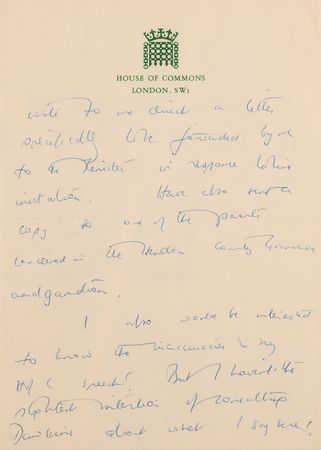 HOUSE OF COMMONS
LONDON, SW1
write to me direct a letter
specifically to be forwarded by me
to the Minister in response to his
invitation. Have also sent a
copy to one of the parents
concerned in the Hendon County Grammar
amalgamation.
I also would be interested
to know the inaccuracies in my
H of C speech! But I haven't the
slightest intention of consulting
Dawkins about what I say here!